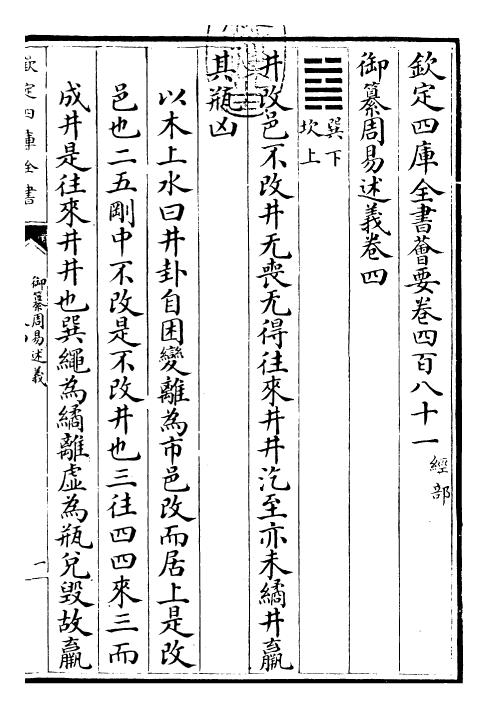 欽定四庫全書薈要卷四百八十一 經部
御纂周易述義卷四
巽下
坎上
井改邑不改井无喪无得往來井井汔至亦未繘井羸
其瓶凶
以木上水曰井卦自困變離為市邑改而居上是改
邑也二五剛中不改是不改井也三往四四來三而
成井是往來井井也巽繩為繘離虛為瓶兌毀故羸
欽定四庫全書
御纂周易述義